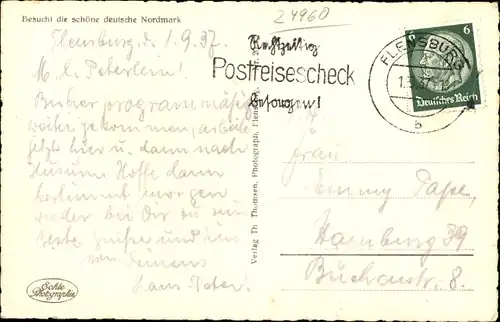 Besucht die schöne deutsche Nordmark
24960
Flensburg, d. 1.9.37.
M. l. Peterlein!
Bisher programmäßig
weiter gekommen, arbeite
jetzt hier u. dann nach
Husum. Hoffe dann
bestimmt morgen
wieder bei Dir zu sein
Beste Grüße und
von
Hans
Echte
Photographie
Verlag Th. Thomsen, Photograph, Flensburg
Rechtzeitig
Postreisescheck
besorgen!
FLENSBURG
b
6 6
Deutsches Reich
Frau
Emmy Pape,
Hamburg 39
8.